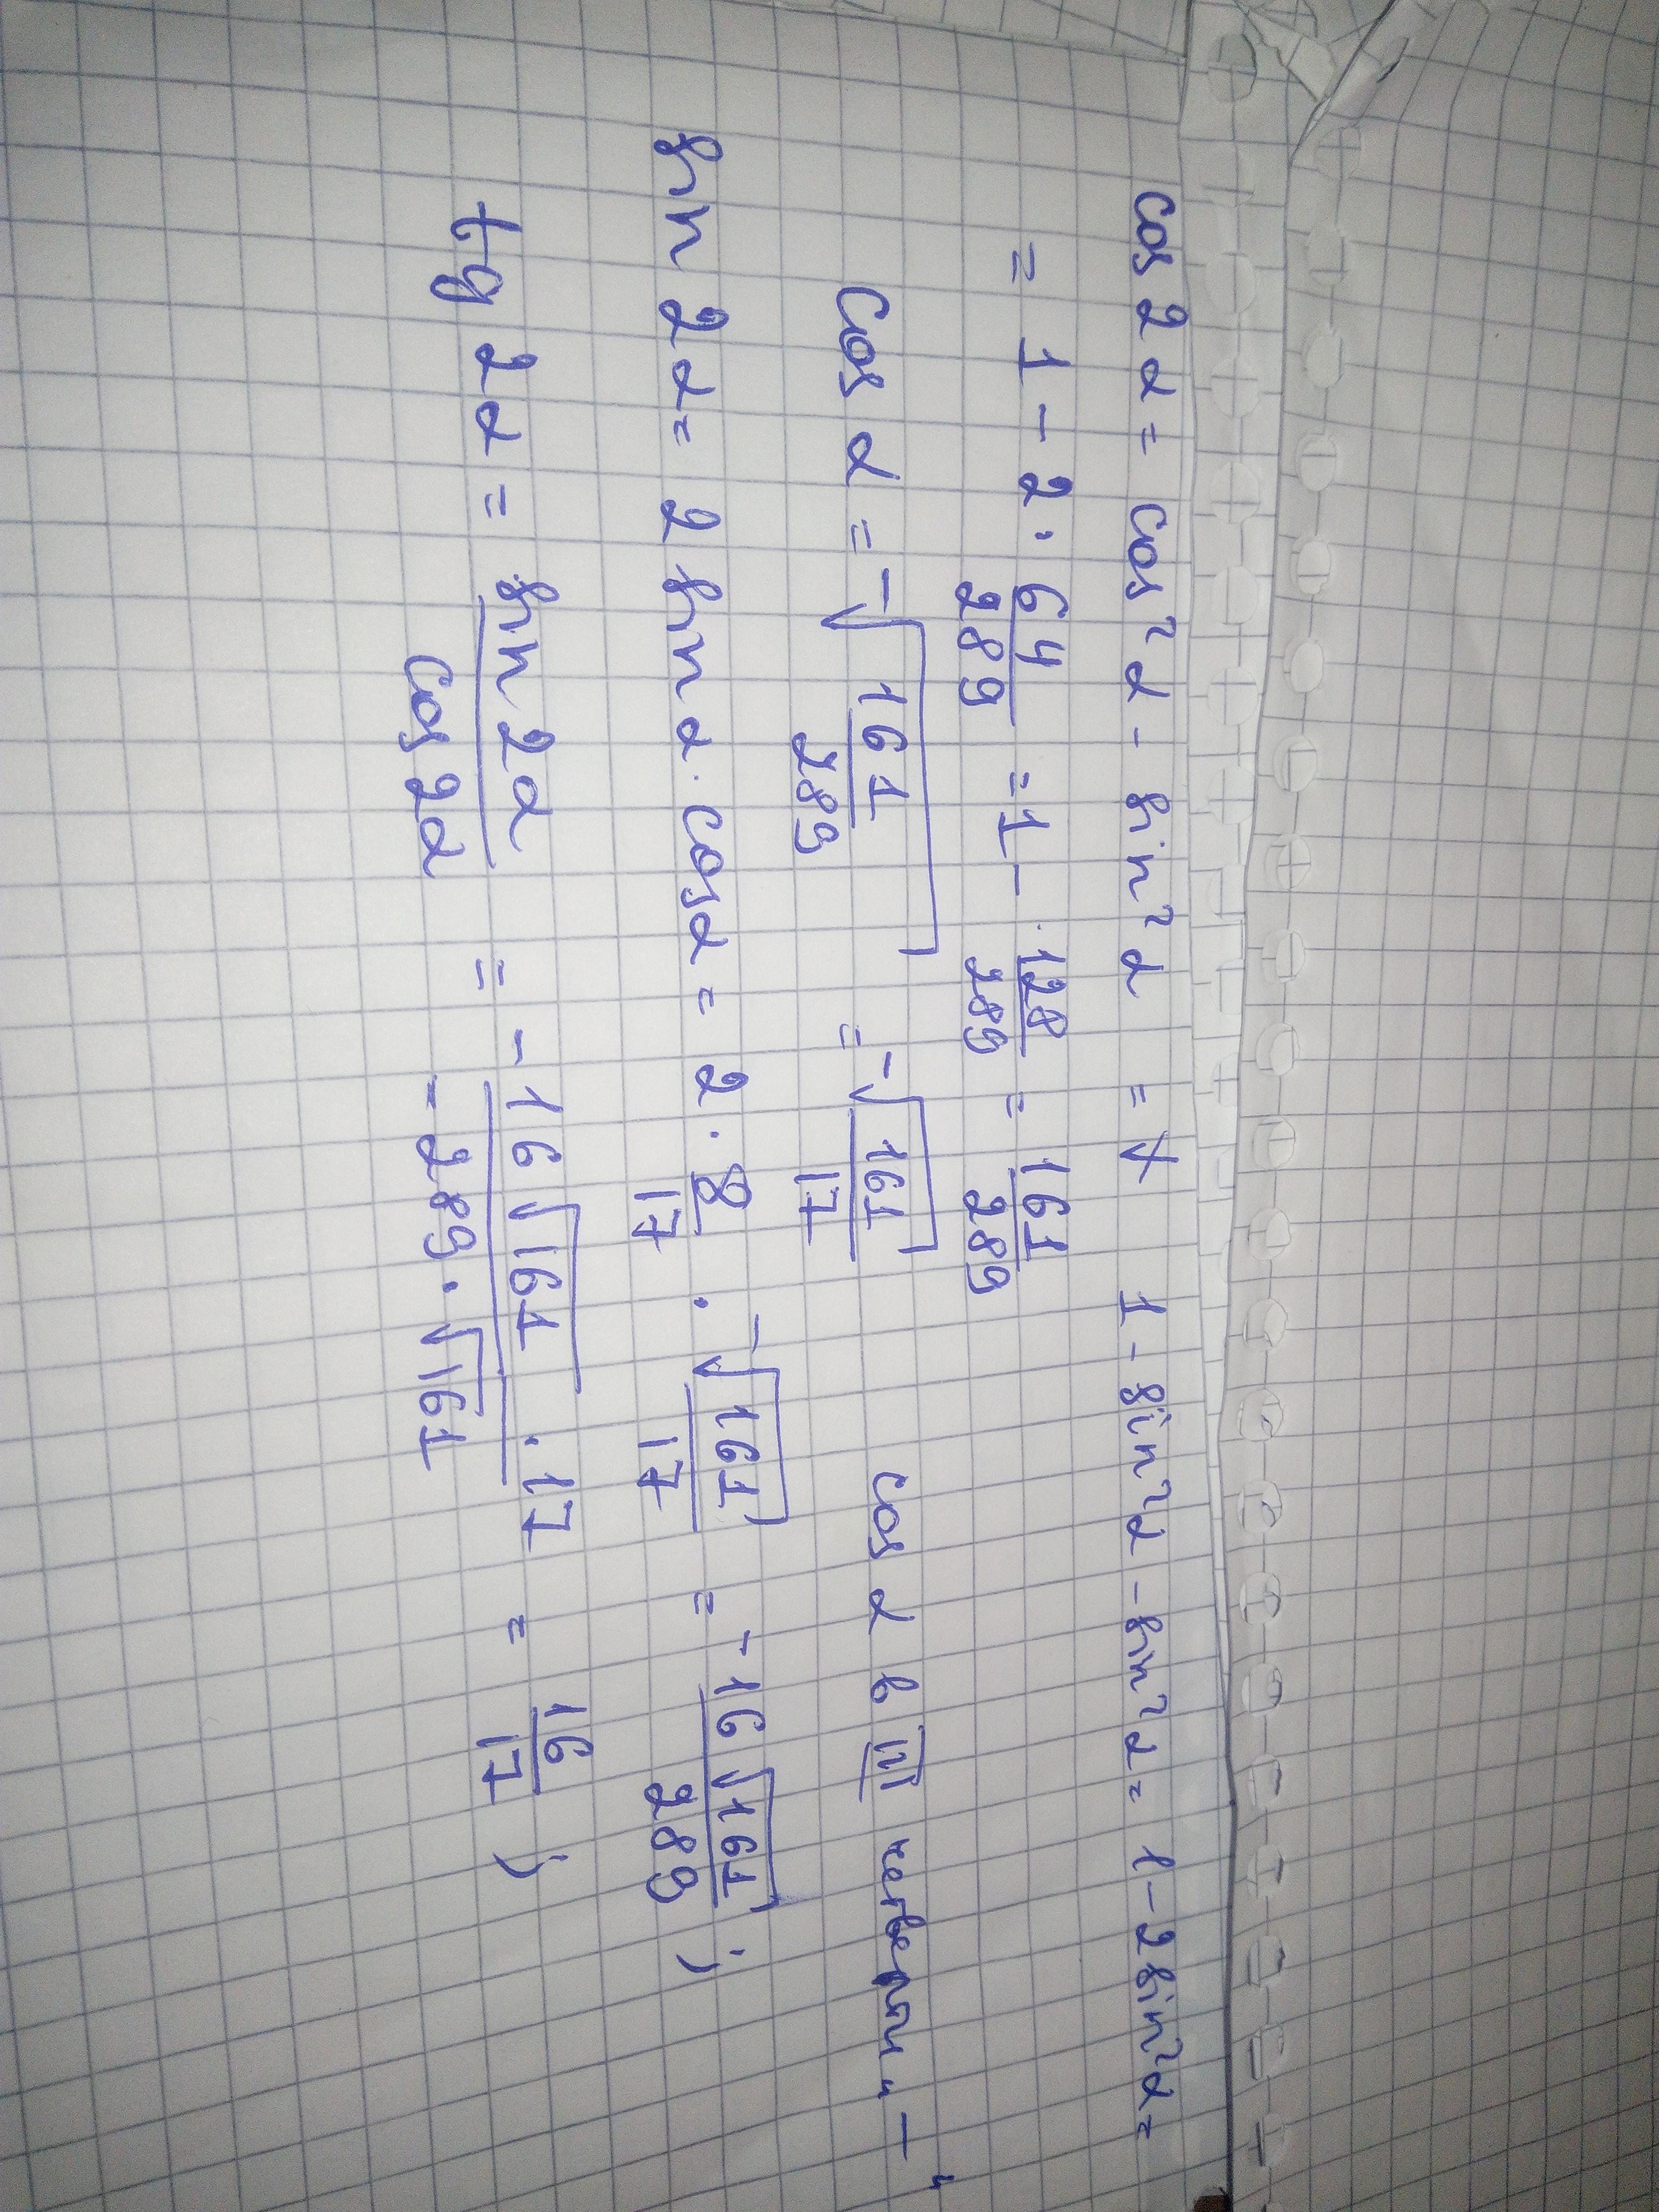 cos 2α = cos²α - sin²α = 1 - sin²α - sin²α = 1 - 2sin²α =
= 1 - 2 · 64/289 = 1 - 128/289 = 161/289
cos α = -√(161/289) = -√(161/17) cos α в III четверти „—“
sin 2α = 2 sin α · cos α = 2 · 8/17 · -√(161/17) = - 16√161/289 ;
tg 2α = sin 2α/cos 2α = - 16√161 · 17/- 289 · √161 = 16/17 ;